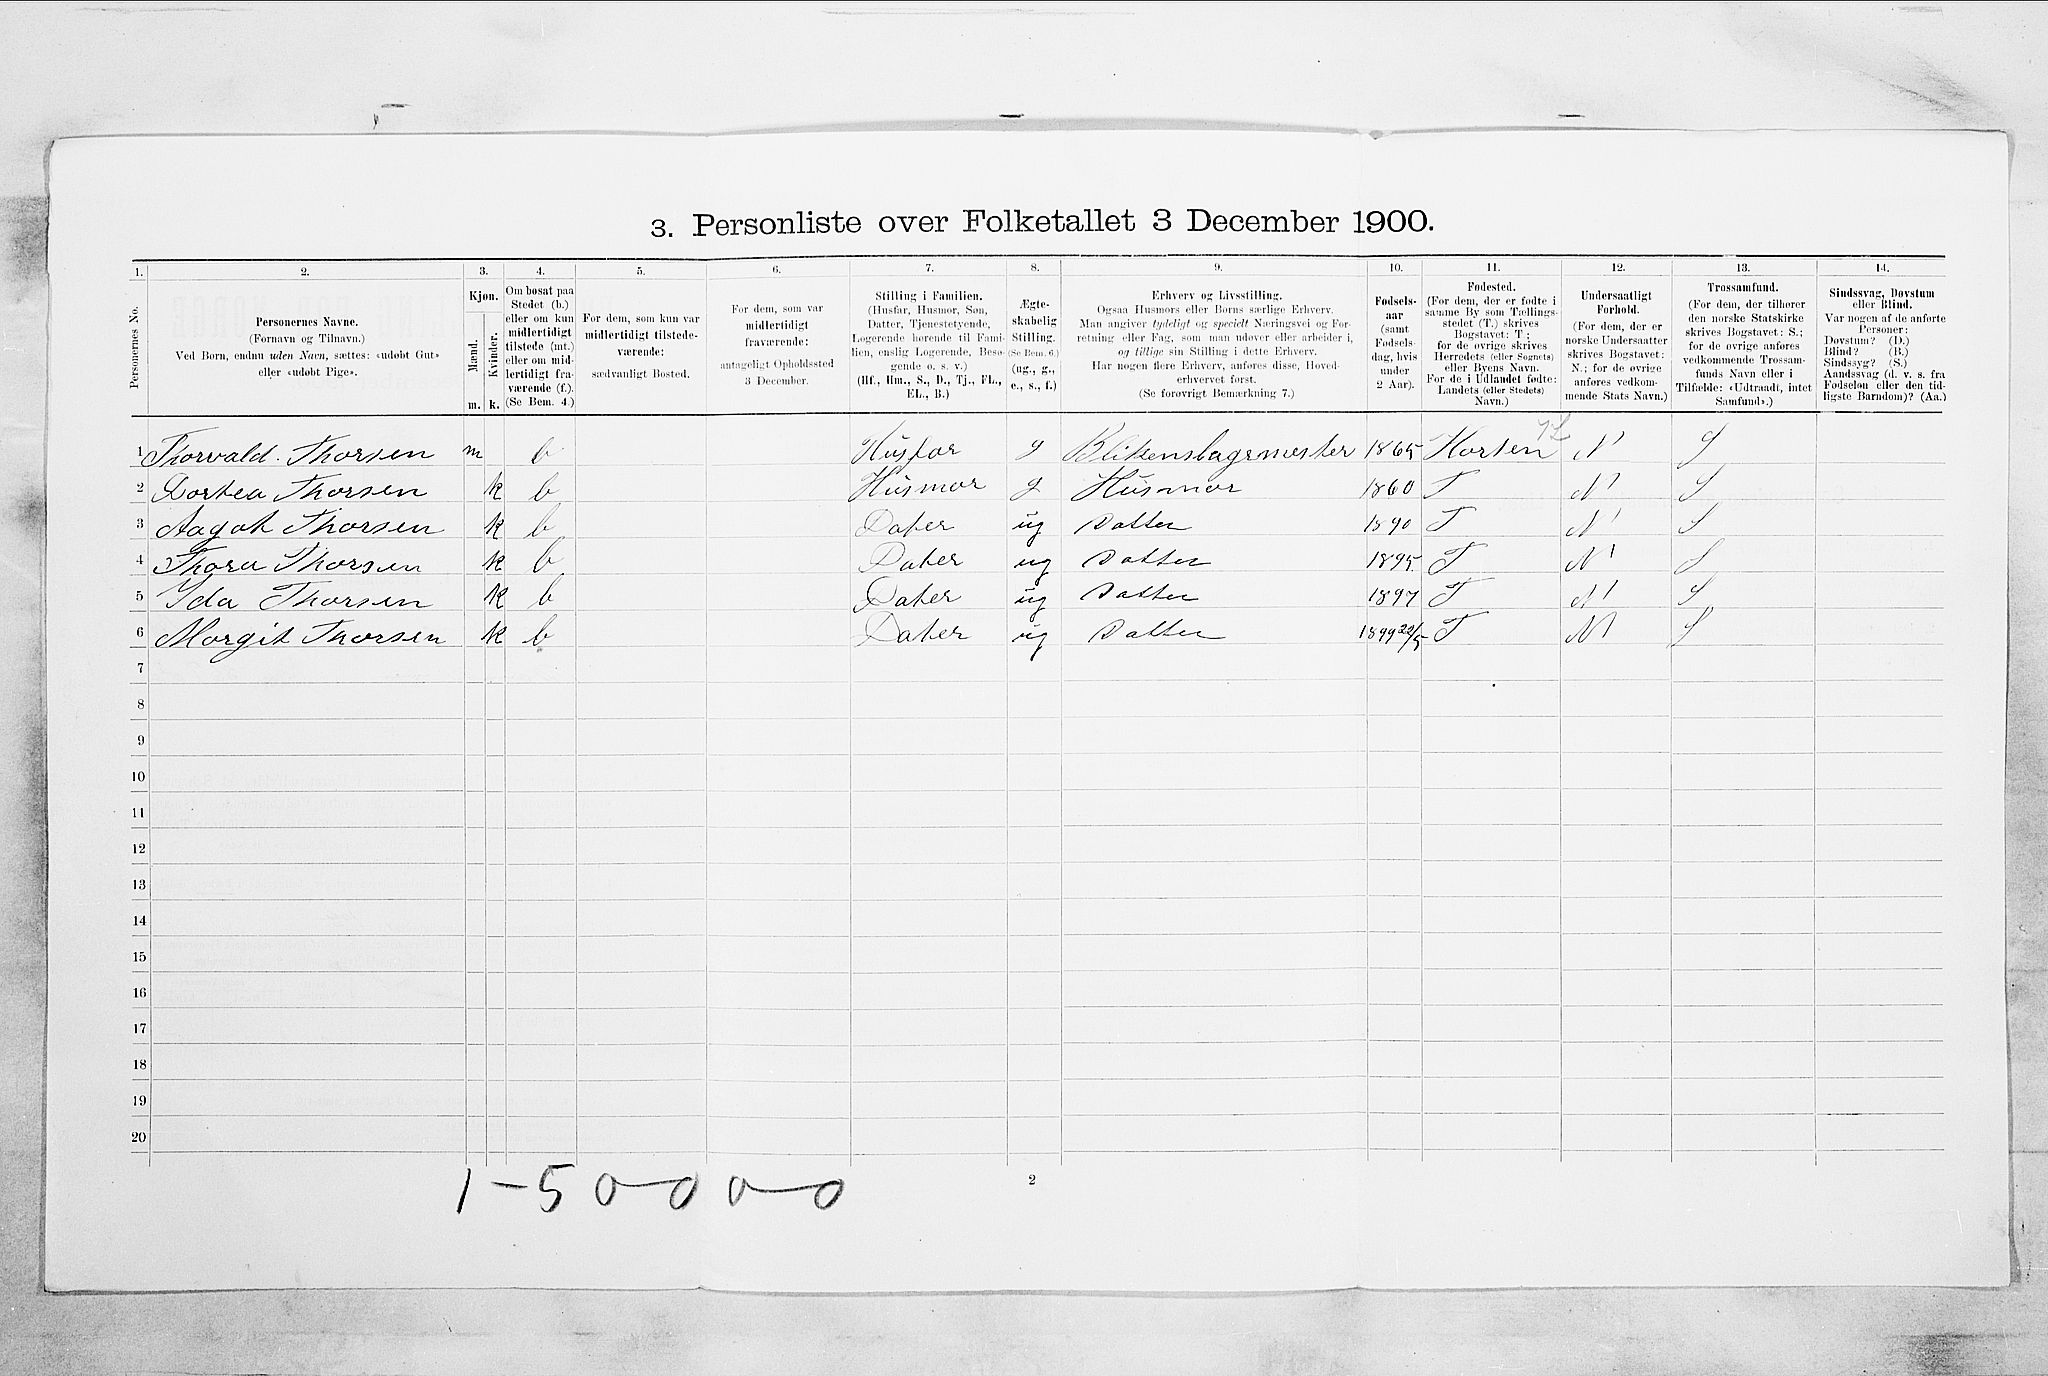 3. Personliste over Folketallet 3 December 1900.
1. 2. 3. 4. 5. 6. 7. 8. 9. 10. 11. 12. 13. 14.
Personernes No.
Personernes Navne.
(Fornavn og Tilnavn.)
Ved Børn, endnu uden Navn, sættes: «udøbt Gut»
eller «udøbt Pige».
Kjøn.
Mænd.
Kvinder.
m. k.
Om bosat paa
Stedet (b.)
eller om kun
midlertidigt
tilstede (mt.)
eller om mid-
lertidigt fra-
værende (f.).
(Se Bem. 4.)
For dem, som kun var
midlertidigt tilstede-
værende:
sædvanligt Bosted.
For dem, som var
midlertidigt
fraværende:
antageligt Opholdssted
3 December.
Stilling i Familien.
(Husfar, Husmor, Søn,
Datter, Tjenestetyende,
Logerende hørende til Fami-
lien, enslig Logerende, Besø-
gende o. s. v.)
(Hf., Hm., S., D., Tj., FL.,
EL., B.)
Ægte-
skabelig
Stilling.
(Se Bem. 6.)
(ug., g.,
e., s., f.)
Erhverv og Livsstilling.
Ogsaa Husmors eller Børns særlige Erhverv.
Man angiver tydeligt og specielt Næringsvei og For-
retning eller Fag, som man udøver eller arbeider i,
og tillige sin Stilling i dette Erhverv.
Har nogen flere Erhverv, anføres disse, Hoved-
erhvervet først.
(Se forøvrigt Bemærkning 7.)
Fødsels-
aar
(samt
Fødsels-
dag, hvis
under
2 Aar).
Fødested.
(For dem, der er fødte i
samme By som Tællings-
stedet (T.) skrives
Bogstavet: T;
for de øvrige skrives
Herredets (eller Sognets)
eller Byens Navn.
For de i Udlandet fødte:
Landets (eller Stedets)
Navn.)
Undersaatligt
Forhold.
(For dem, der er
norske Undersaatter
skrives Bogstavet:
N.; for de øvrige
anføres vedkom-
mende Stats Navn.)
Trossamfund.
(For dem, der tilhører
den norske Statskirke
skrives Bogstavet: S.;
for de øvrige anføres
vedkommende Trossam-
funds Navn eller i
Tilfælde: «Udtraadt, intet
Samfund».)
Sindssvag, Døvstum
eller Blind.
Var nogen af de anførte
Personer:
Døvstum? (D.)
Blind? (B.)
Sindssyg? (S.)
Aandssvag (d. v. s. fra
Fødselen eller den tid-
ligste Barndom)? (Aa.)
1 Thorvald. Thorsen m b Husfar g Blikenslagermester 1865 Horten N S
2 Dortea Thorsen k b Husmor g Husmor 1860 T N S
3 Aagot Thorsen k b Dater ug Datter 1890 T N S
4 Thora Thorsen k b Dater ug Datter 1895 T N S
5 Ida Thorsen k b Dater ug Datter 1897 T N S
6 Margit Thorsen k b Dater ug Datter 1899 22/5 T N S
7
8
9
10
11
12
13
14
15
16
17
18
19
20
1-50000
2